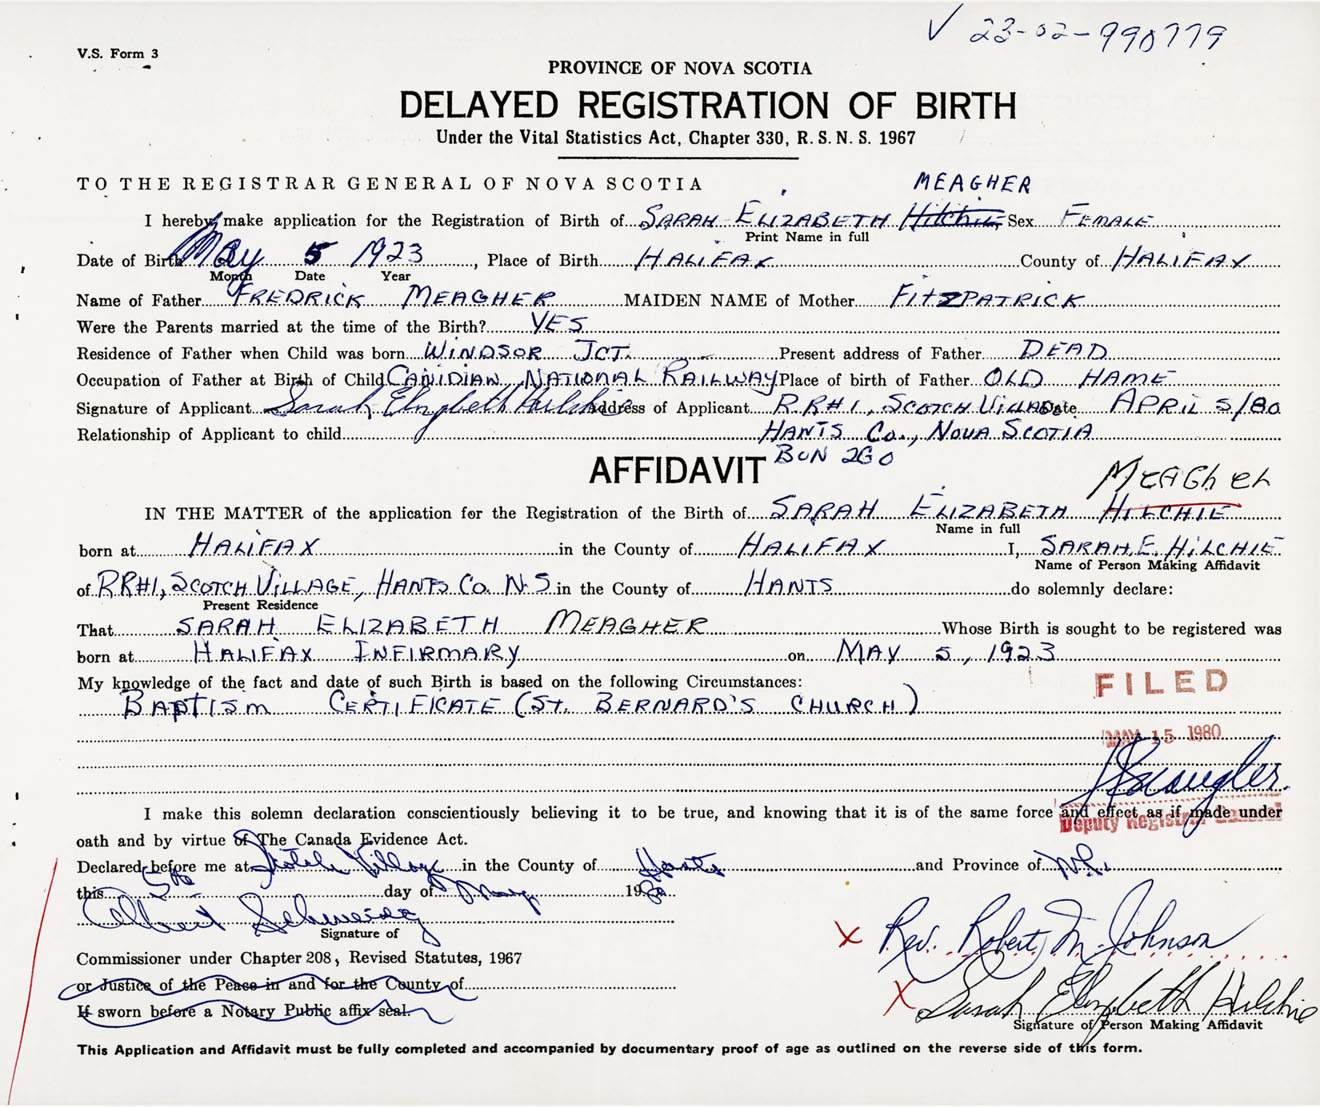 ✓ 23-02-990779
V.S. Form 3
PROVINCE OF NOVA SCOTIA
DELAYED REGISTRATION OF BIRTH
Under the Vital Statistics Act, Chapter 330, R. S. N. S. 1967
TO THE REGISTRAR GENERAL OF NOVA SCOTIA
MEAGHER
I hereby make application for the Registration of Birth of SARAH ELIZABETH Hilchie Sex FEMALE
Print Name in full
Date of Birth May 5 1923, Place of Birth HALIFAX County of HALIFAX
Month Date Year
Name of Father FREDRICK MEAGHER MAIDEN NAME of Mother FITZPATRICK
Were the Parents married at the time of the Birth? YES
Residence of Father when Child was born WINDSOR JCT. Present address of Father DEAD
Occupation of Father at Birth of Child CANIDIAN NATIONAL RAILWAY Place of birth of Father OLD HAME
Signature of Applicant Sarah Elizabeth Hilchie Address of Applicant R.R#1, SCOTCH VILLAGE Date APRIL 5/80
Relationship of Applicant to child HANTS CO., NOVA SCOTIA
BON 2G0
AFFIDAVIT
MEAGhER
IN THE MATTER of the application for the Registration of the Birth of SARAH ELIZABETH HILCHIE
Name in full
born at HALIFAX in the County of HALIFAX I, SARAH E. HILCHIE
Name of Person Making Affidavit
of RR#1, SCOTCH VILLAGE, HANTS CO. N.S. in the County of HANTS do solemnly declare:
Present Residence
That SARAH ELIZABETH MEAGHER Whose Birth is sought to be registered was
born at HALIFAX INFIRMARY on MAY 5, 1923
My knowledge of the fact and date of such Birth is based on the following Circumstances:
FILED
BAPTISM CERTIFICATE (ST. BERNARD'S CHURCH)
MAY 15 1980
I make this solemn declaration conscientiously believing it to be true, and knowing that it is of the same force and effect as if made under
Deputy Registrar General
oath and by virtue of The Canada Evidence Act.
Declared before me at Scotch Village in the County of Hants and Province of N.S.
this 5th day of May 1980
Albert
Signature of
Rev. Robert M. Johnson
Commissioner under Chapter 208, Revised Statutes, 1967
or Justice of the Peace in and for the County of
X Sarah Elizabeth Hilchie
If sworn before a Notary Public affix seal.
Signature of Person Making Affidavit
This Application and Affidavit must be fully completed and accompanied by documentary proof of age as outlined on the reverse side of this form.